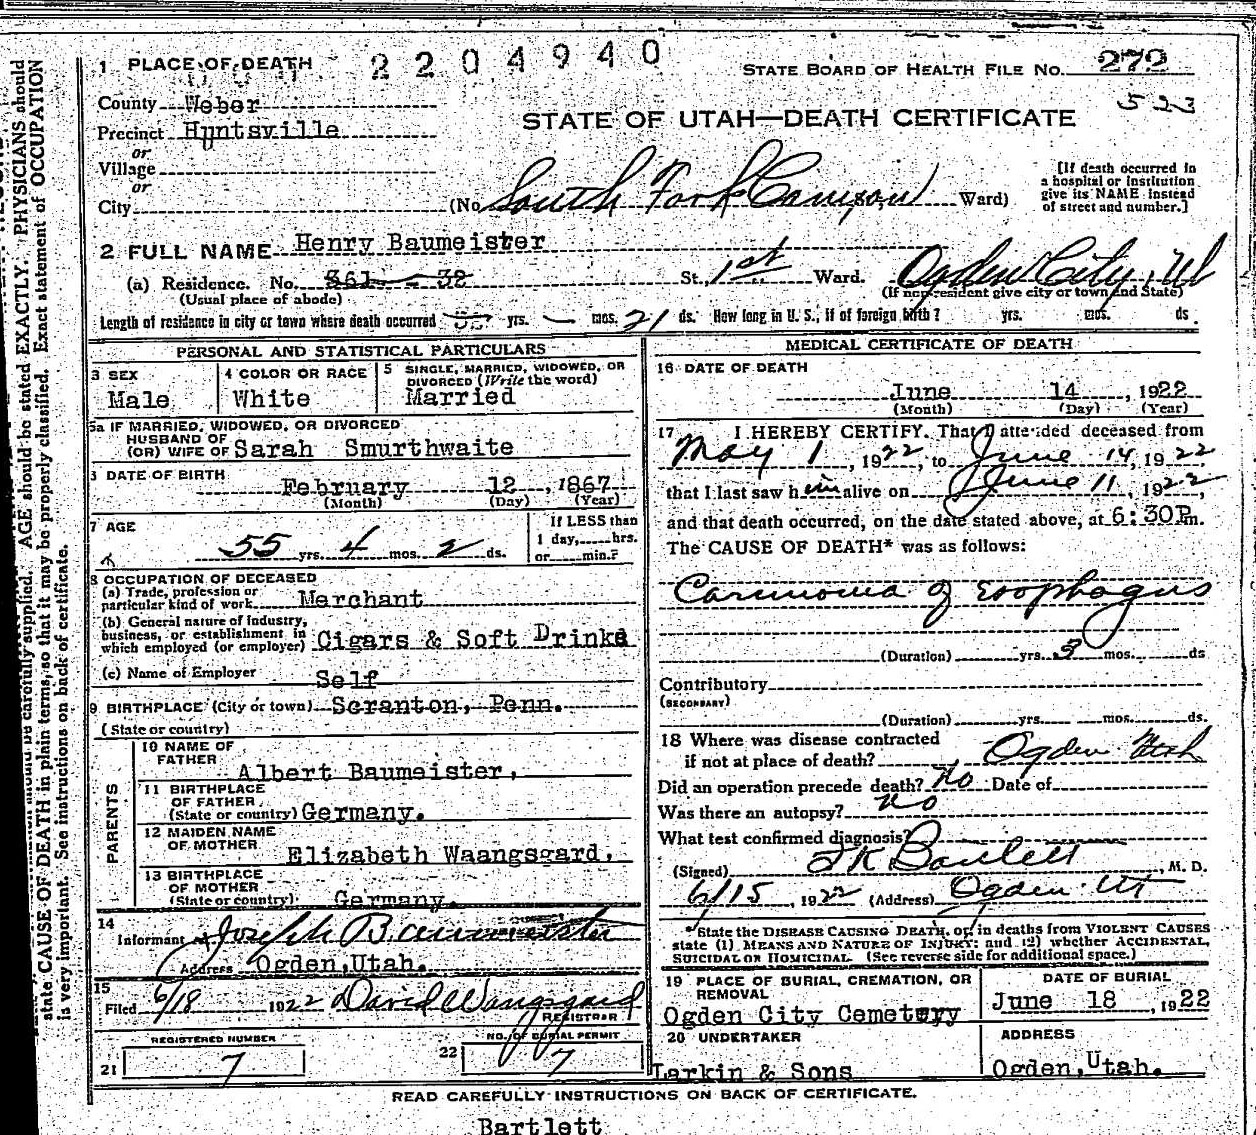 1 PLACE OF DEATH 2204940 STATE BOARD OF HEALTH FILE NO. 272
County Weber 523
Precinct Huntsville STATE OF UTAH—DEATH CERTIFICATE
or
Village
or
City (No. South Fork Canyon Ward) [If death occurred in a hospital or institution give its NAME instead of street and number.]
2 FULL NAME Henry Baumeister
(a) Residence. No. 361 - 32 St., 1st Ward. Ogden City, Ut
(Usual place of abode) (If non-resident give city or town and State)
Length of residence in city or town where death occurred yrs. — mos. 21 ds. How long in U. S., if of foreign birth? yrs. mos. ds
PERSONAL AND STATISTICAL PARTICULARS
3 SEX
Male
4 COLOR OR RACE
White
5 SINGLE, MARRIED, WIDOWED, OR
DIVORCED (Write the word)
Married
5a IF MARRIED, WIDOWED, OR DIVORCED
HUSBAND OF
(OR) WIFE OF Sarah Smurthwaite
6 DATE OF BIRTH
February 12, 1867
(Month) (Day) (Year)
7 AGE
55 yrs. 4 mos. 2 ds.
If LESS than
1 day,....hrs.
or....min.?
8 OCCUPATION OF DECEASED
(a) Trade, profession or
particular kind of work Merchant
(b) General nature of industry,
business, or establishment in
which employed (or employer) Cigars & Soft Drinks
(c) Name of Employer Self
9 BIRTHPLACE (City or town) Scranton, Penn.
(State or country)
PARENTS
10 NAME OF
FATHER
Albert Baumeister,
11 BIRTHPLACE
OF FATHER
(State or country) Germany.
12 MAIDEN NAME
OF MOTHER
Elizabeth Waangsgard,
13 BIRTHPLACE
OF MOTHER
(State or country) Germany.
14
Informant Joseph Baumeister
Address Ogden, Utah.
15
Filed 6/18 1922 David Wangsgaard
REGISTRAR
REGISTERED NUMBER
21 7
NO. OF BURIAL PERMIT
22 7
MEDICAL CERTIFICATE OF DEATH
16 DATE OF DEATH
June 14, 1922
(Month) (Day) (Year)
17 I HEREBY CERTIFY. That I attended deceased from
May 1, 1922, to June 14, 1922
that I last saw him alive on June 11, 1922,
and that death occurred, on the date stated above, at 6:30P.m.
The CAUSE OF DEATH* was as follows:
Carcinoma of Esophagus
(Duration) yrs. 3 mos. ds
Contributory
(SECONDARY)
(Duration) yrs. mos. ds.
18 Where was disease contracted
if not at place of death? Ogden Utah
Did an operation precede death? No Date of
Was there an autopsy? No
What test confirmed diagnosis?
(Signed) Bartlett, M. D.
6/15, 1922 (Address) Ogden Ut
*State the DISEASE CAUSING DEATH, or, in deaths from VIOLENT CAUSES
state (1) MEANS AND NATURE OF INJURY: and (2) whether ACCIDENTAL,
SUICIDAL OR HOMICIDAL. (See reverse side for additional space.)
19 PLACE OF BURIAL, CREMATION, OR
REMOVAL
Ogden City Cemetery
DATE OF BURIAL
June 18, 1922
20 UNDERTAKER
Larkin & Sons
ADDRESS
Ogden, Utah.
READ CAREFULLY INSTRUCTIONS ON BACK OF CERTIFICATE.
Bartlett
be carefully supplied. AGE should be stated EXACTLY. PHYSICIANS should
state CAUSE OF DEATH in plain terms, so that it may be properly classified. Exact statement of OCCUPATION
is very important. See instructions on back of certificate.